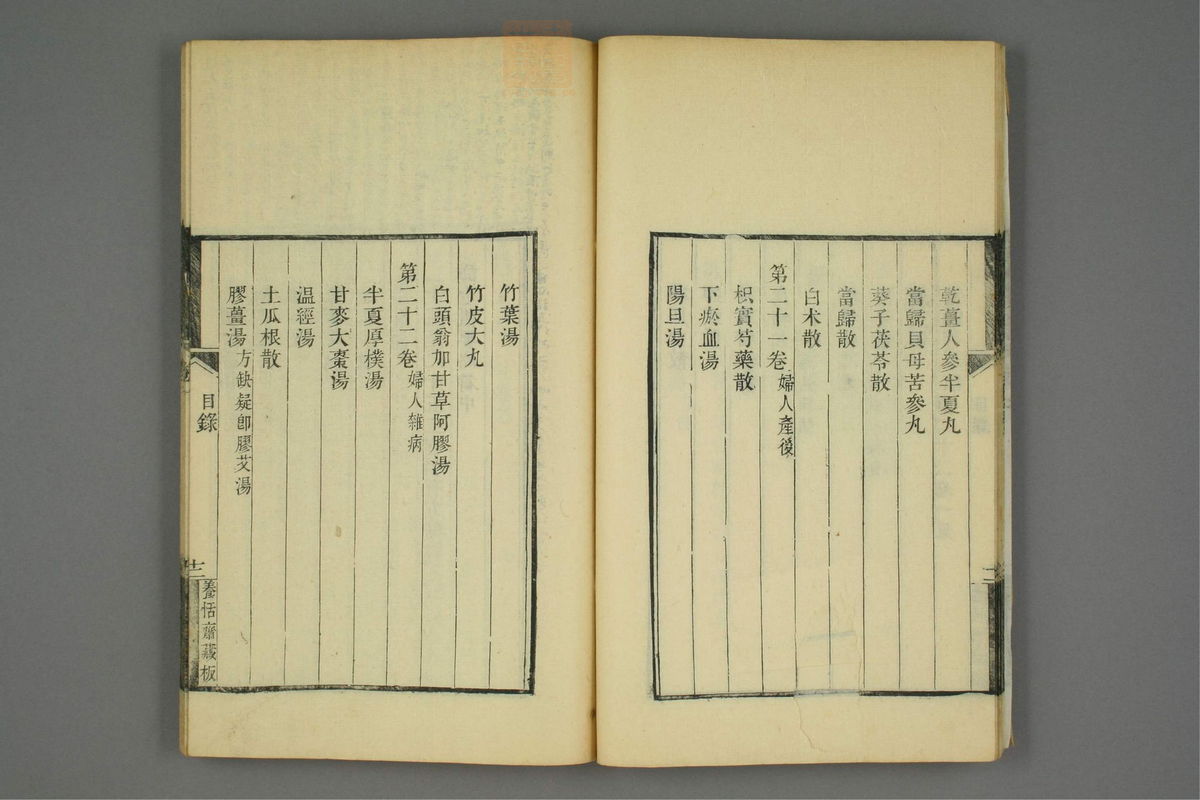 乾薑人參半夏丸
當歸貝母苦參丸
葵子茯苓散
當歸散
白朮散
第二十一卷 婦人產後
枳實芍藥散
下瘀血湯
陽旦湯
竹葉湯
竹皮大丸
白頭翁加甘草阿膠湯
第二十二卷 婦人雜病
半夏厚樸湯
甘麥大棗湯
温經湯
土瓜根散
膠薑湯 方缺疑卽膠艾湯
目錄
十二
養恬齋藏板